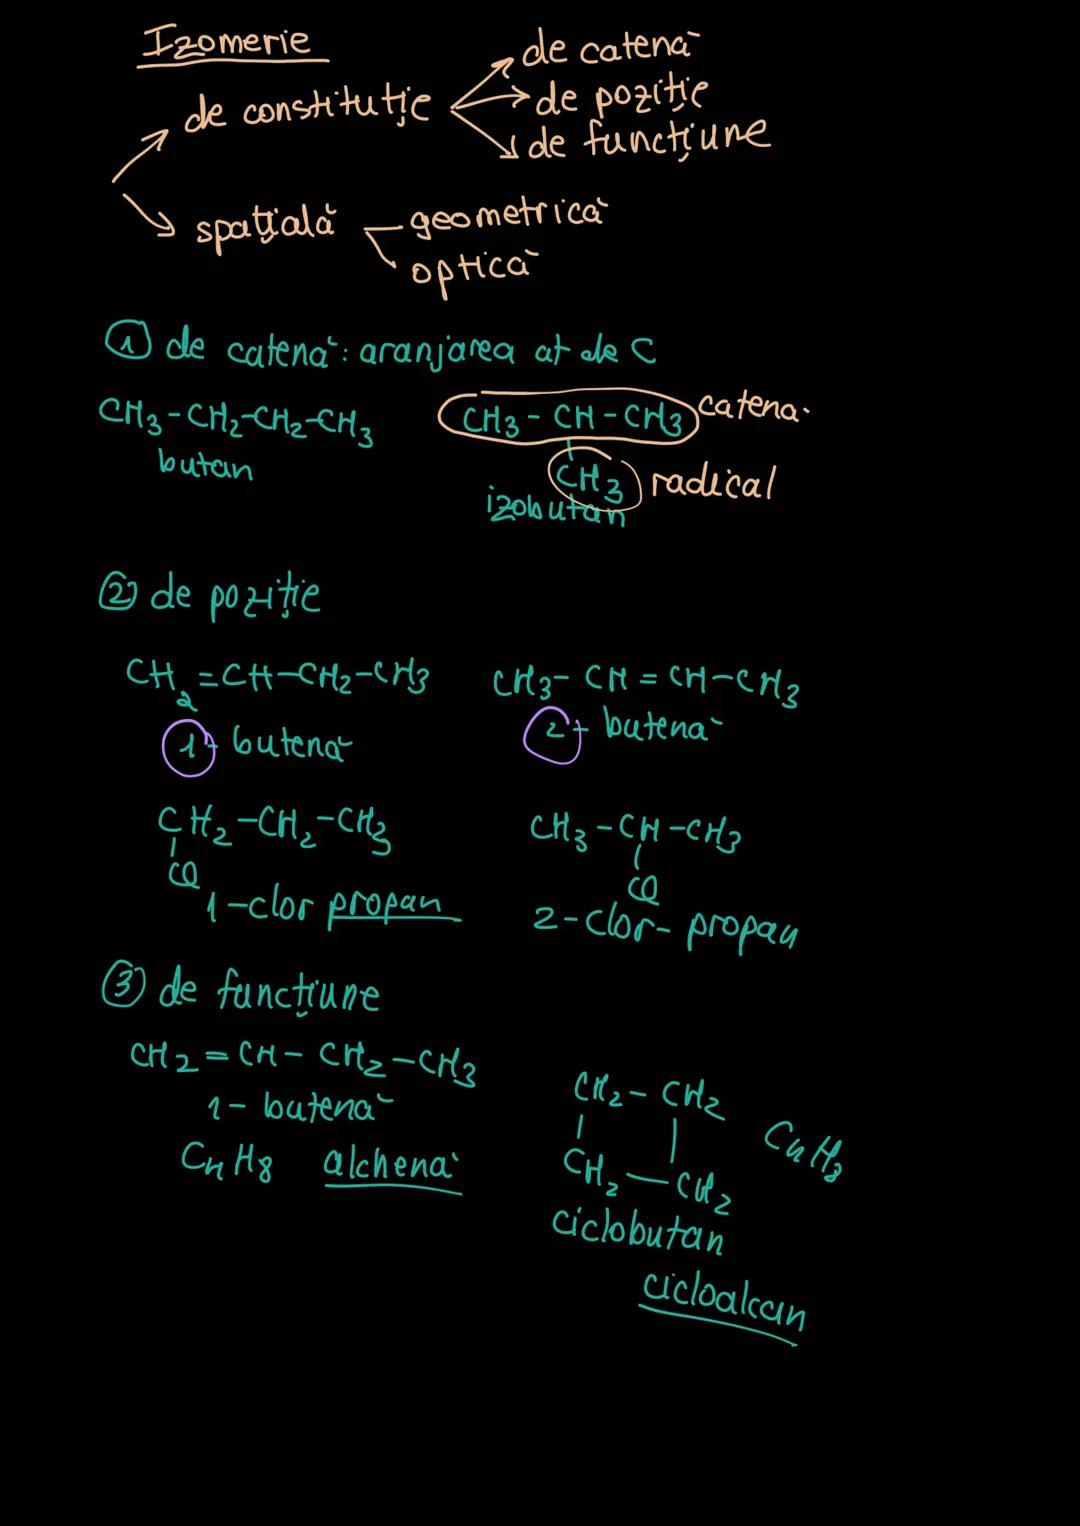 Izomerie
de constituție
de catenă
de poziție
de funcțiune
spațială
geometrică
optică
① de catenă: aranjarea at de C
CH3-CH2-CH2-CH3
butan
CH3-CH-CH3 catenă
CH3 radical
izobutan
② de poziție
CH2=CH-CH2-CH3
1-butenă
CH3-CH=CH-CH3
2-butenă
CH2-CH2-CH3
Cl
1-clor propan
CH3-CH-CH3
Cl
2-clor-propan
③ de funcțiune
CH2=CH-CH2-CH3
1-butenă
C4H8 alchenă
CH2-CH2
CH2-CH2
C4H8
ciclobutan
cicloalcan